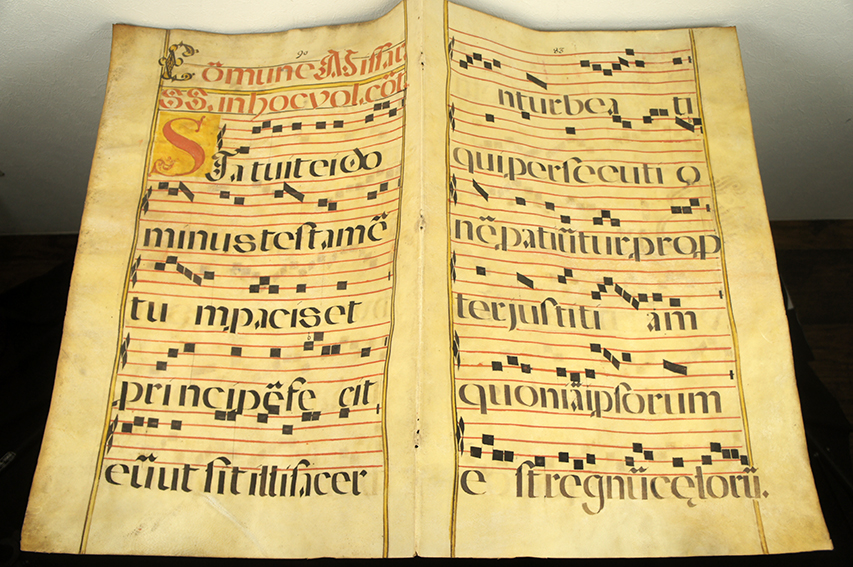 90
Cõmune Missar
SS. in hoc vol. cõt.
STatuit ei do
minus teſtamē
tu m, pacis et
principē fe cit
eū ut ſit illi ſacer
ntur bea ti
qui perſecuti o
nē patiūtur, prop
ter juſtiti am
quoniā ipſorum
e ſt regnū cęlorū.